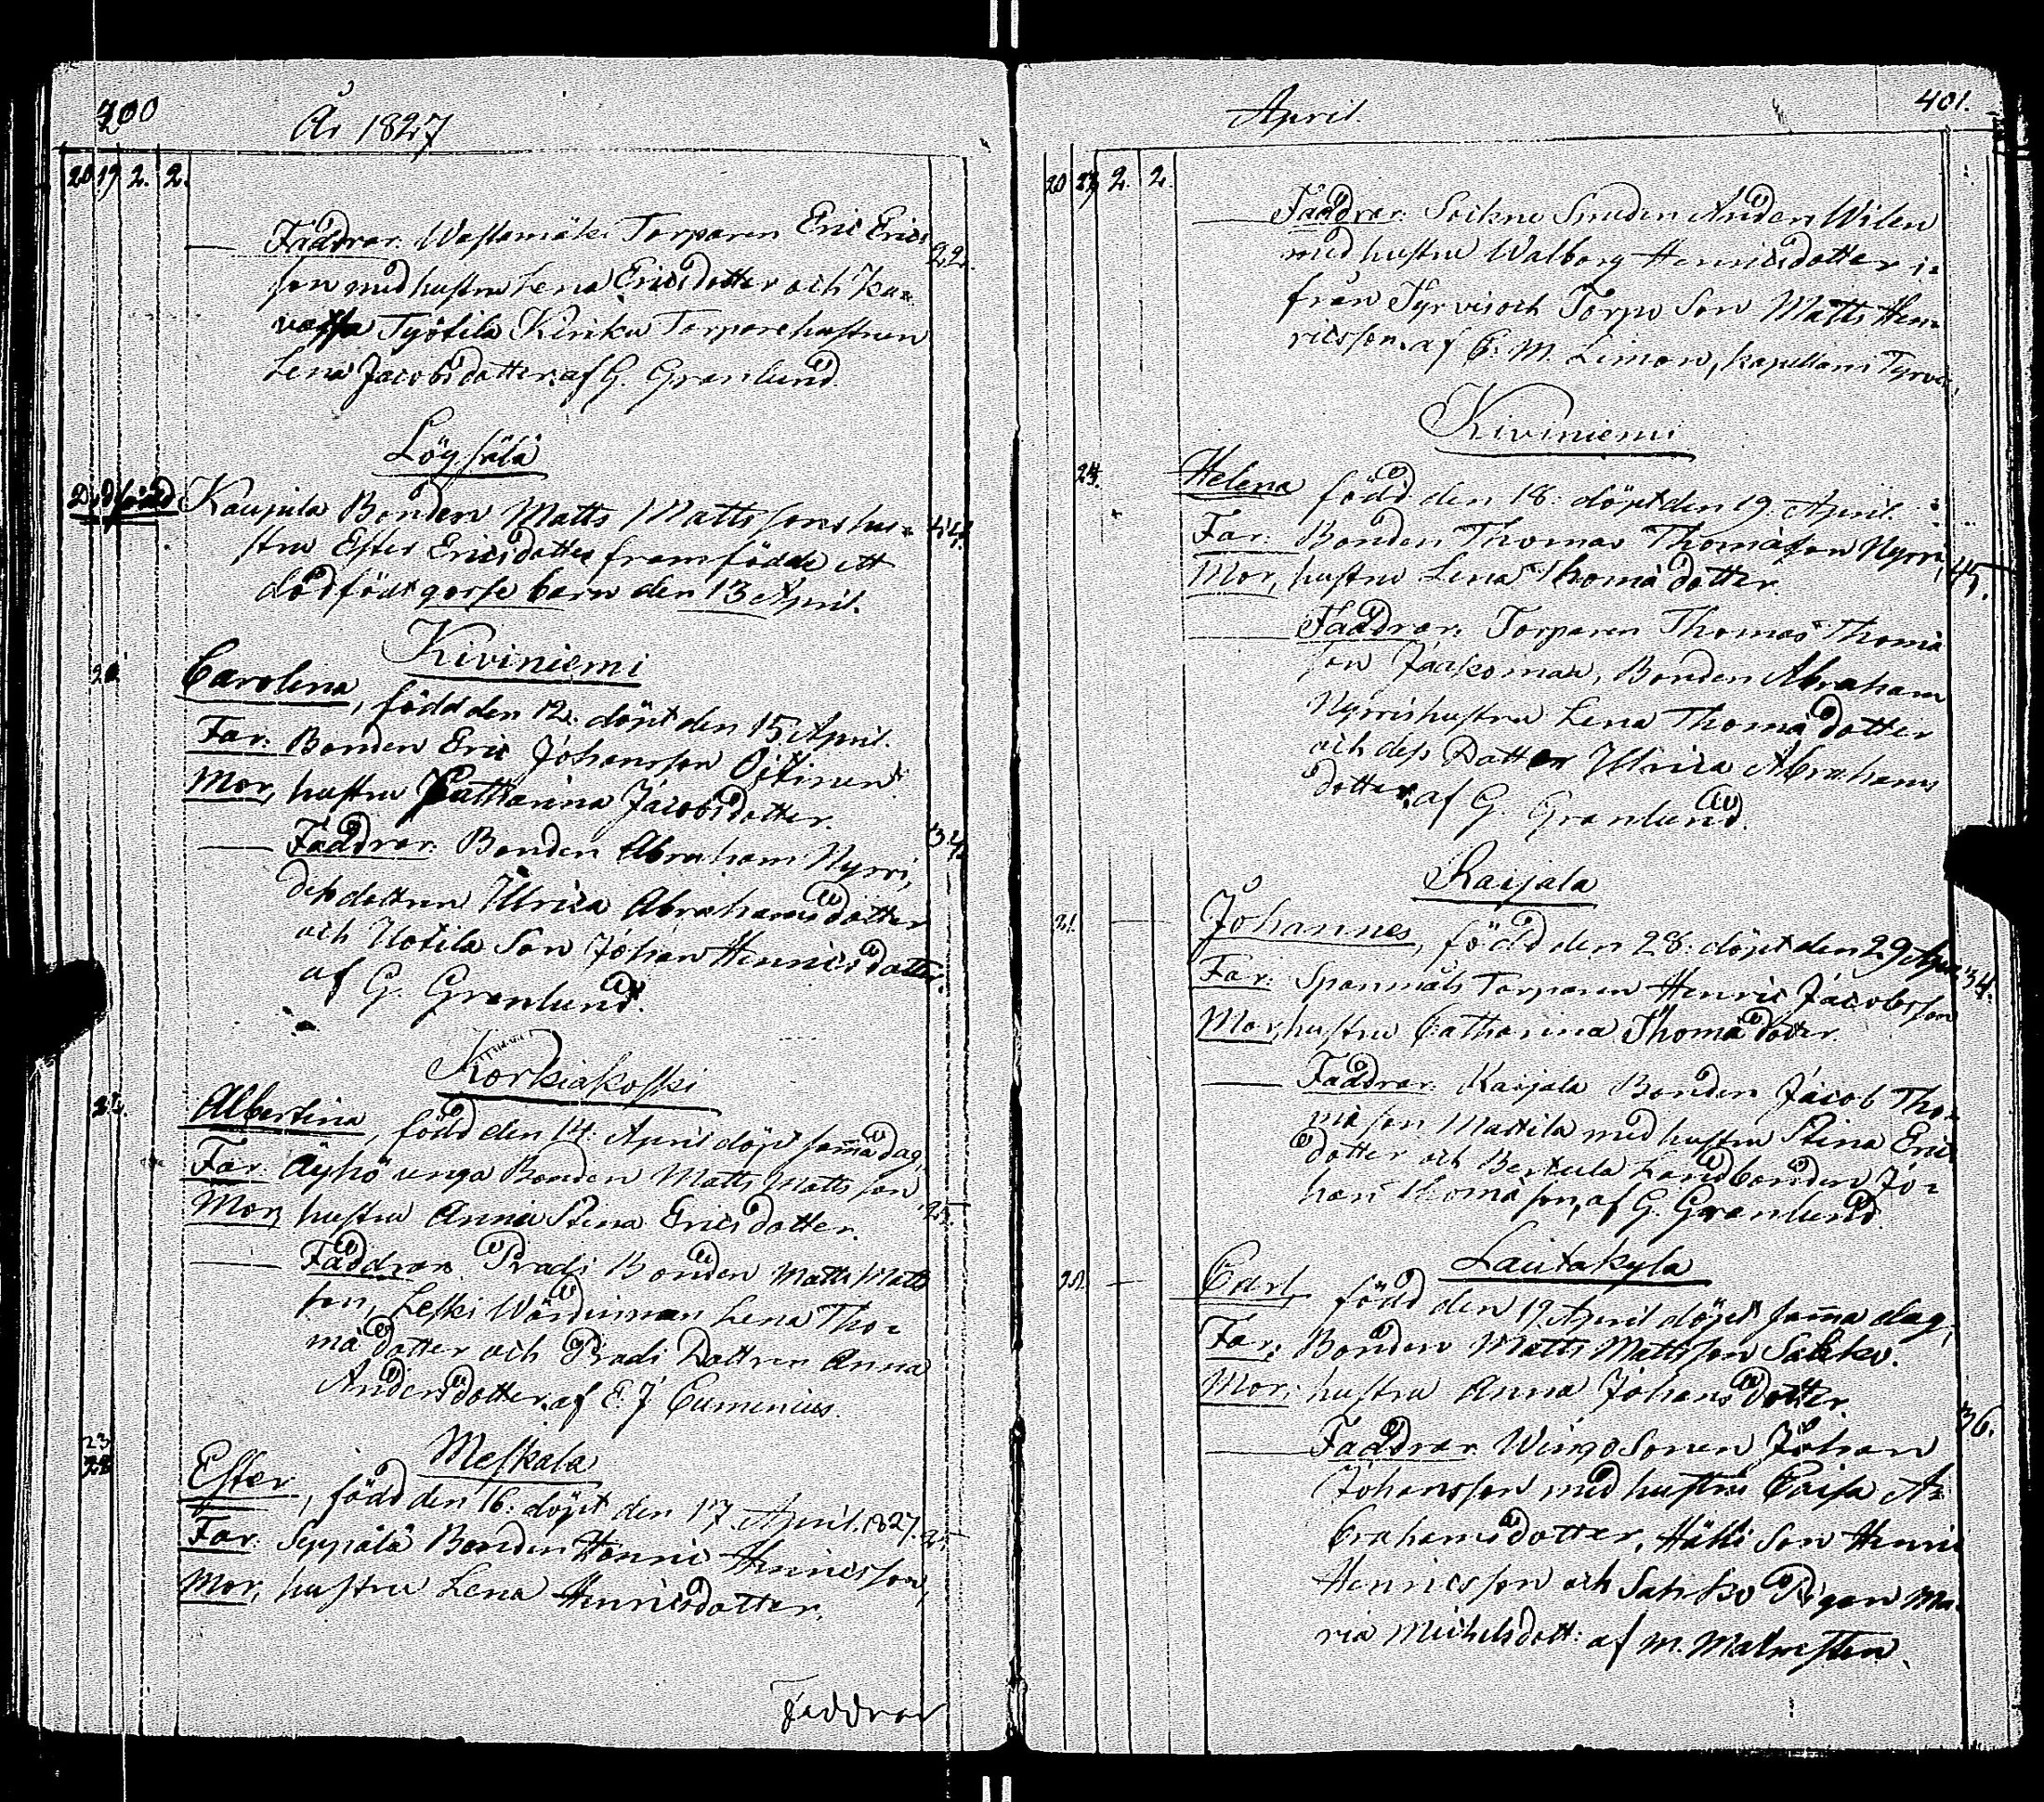 400
År 1827
20 19 2. 2.
Faddrar: Wastamäki Torparen Eric Erics
son med hustru Lena Ericsdotter och Ka-
vassa Työtilä Kiriku Torpare hustrun
Lena Jacobsdotter. af G. Granlund
22.
Löysälä
Dödfödd Kaupila Bonden Matts Mattssons hus-
tru Ester Ericsdotter framfödde ett
dödfödt gosse barn den 13 April.
44.
Kiviniemi
20. Carolina, född den 12. döpt den 15 April.
Far: Bonden Eric Johansson Oitinen
Mor, hustru Catharina Jacobsdotter.
34.
Faddrar: Bonden Abraham Nyrri,
dess dottren Ulrica Abrahamsdotter
och Uotila Son Johan Henricsdotter
af G. Granlund.
Korkiakoski
Albertina, född den 14. April döpt samma dag,
Far: Äyhö unga Bonden Matts Mattsson
Mor, hustru Anna Stina Ericsdotter.
25.
Faddrar: Pradi Bonden Matts Matts
son, Leski Wärdinnan Lena Tho-
mädotter och Pradi Dottren Anna
Andersdotter. af E. J. Cumenius.
Meskala
23
22
Ester, född den 16. döpt den 17 April. 1827.
Far: Seppälä Bonden Henric Henricsson,
Mor, hustru Lena Henricsdotter.
25
Faddrar
April.
401.
20 2. 2.
Faddrar: Soikne Smeden Anders Wilen
med hustru Walborg Henricsdotter i-
från Tyrvis och Torpo Son Matts Hen-
ricsson. af G. M. Limon, kapellan i Tyrvis,
Kiviniemi
24. Helena född den 18. döpt den 19. April.
Far: Bonden Thomas Thomasson Nyrri,
Mor, hustru Lena Thomädotter.
45.
Faddrar: Torparen Thomas Thomä
son Jaakoman, Bonden Abraham
Nyrris hustru Lena Thomädotter
och dess Dotter Ulrica Abrahams
dotter. af G. Granlund.
Raijala
Johannes, född den 28. döpt den 29 Apr.
34.
Far: Spanmäls Torparen Henric Jacobsson
Mor, hustru Catharina Thomädotter.
Faddrar: Raijala Bonden Jacob Tho-
mäson Mattila med hustru Stina Erics
dotter och Bertula Landbonden Jo-
han Thomäson, af G. Granlund.
Lautakyla
Carl, född den 19 April döpt samma dag,
Far: Bonden Matts Mattsson Sahko.
Mor: hustru Anna Johansdotter.
36.
Faddrar: Wingo Sonen Johan
Johansson med hustru Caisa A-
brahamsdotter, Hälli Son Henric
Henricsson och Sahko Pigan Ma-
ria Michelsdott: af M. Malmsten.